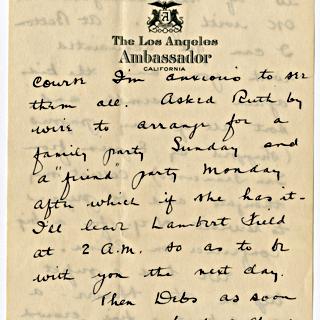 A
The Los Angeles
Ambassador
CALIFORNIA
course I'm anxious to see
them all. Asked Ruth by
wire to arrange for a
family party Sunday and
a "friend" party Monday
after which if she has it -
I'll leave Lambert Field
at 2 A.M. so as to be
with you the next day.
Then Debs as soon